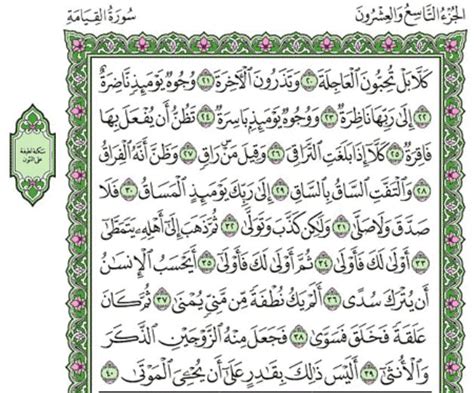 الجزء التاسع والعشرون
سورة القيامة
كَلَّا بَلْ تُحِبُّونَ ٱلْعَاجِلَةَ ٢٠ وَتَذَرُونَ ٱلْآخِرَةَ ٢١ وُجُوهٌ يَوْمَئِذٍ نَّاضِرَةٌ
٢٢ إِلَىٰ رَبِّهَا نَاظِرَةٌ ٢٣ وَوُجُوهٌ يَوْمَئِذٍ بَاسِرَةٌ ٢٤ تَظُنُّ أَن يُفْعَلَ بِهَا
فَاقِرَةٌ ٢٥ كَلَّا إِذَا بَلَغَتِ ٱلتَّرَاقِيَ ٢٦ وَقِيلَ مَنْ رَاقٍ ٢٧ وَظَنَّ أَنَّهُ ٱلْفِرَاقُ
٢٨ وَٱلْتَفَّتِ ٱلسَّاقُ بِٱلسَّاقِ ٢٩ إِلَىٰ رَبِّكَ يَوْمَئِذٍ ٱلْمَسَاقُ ٣٠ فَلَا
صَدَّقَ وَلَا صَلَّىٰ ٣١ وَلَٰكِن كَذَّبَ وَتَوَلَّىٰ ٣٢ ثُمَّ ذَهَبَ إِلَىٰ أَهْلِهِ يَتَمَطَّىٰ
٣٣ أَوْلَىٰ لَكَ فَأَوْلَىٰ ٣٤ ثُمَّ أَوْلَىٰ لَكَ فَأَوْلَىٰ ٣٥ أَيَحْسَبُ ٱلْإِنسَانُ
أَن يُتْرَكَ سُدًى ٣٦ أَلَمْ يَكُ نُطْفَةً مِّن مَّنِيٍّ يُمْنَىٰ ٣٧ ثُمَّ كَانَ
عَلَقَةً فَخَلَقَ فَسَوَّىٰ ٣٨ فَجَعَلَ مِنْهُ ٱلزَّوْجَيْنِ ٱلذَّكَرَ
وَٱلْأُنثَىٰ ٣٩ أَلَيْسَ ذَٰلِكَ بِقَادِرٍ عَلَىٰ أَن يُحْيِيَ ٱلْمَوْتَىٰ ٤٠
سكتة لطيفة
على النون